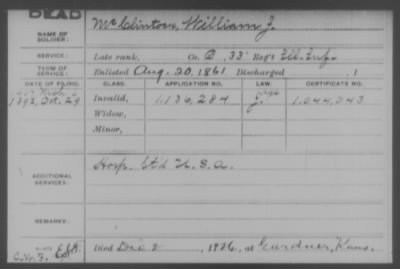 DEAD
NAME OF SOLDIER: McClinton, William J.
SERVICE: Late rank, Co. 33 Reg't Ill. Inf.
TERM OF SERVICE: Enlisted Aug. 20, 1861 Discharged , 1
DATE OF FILING. CLASS. APPLICATION NO. LAW. CERTIFICATE NO.
Oct. 29 Invalid, 1,136,284 1,044,043
Widow,
Minor,
ADDITIONAL SERVICES: Hosp. Std. U.S.A.
REMARKS:
Died Dec 2, 1926, at Gardner, Kans.